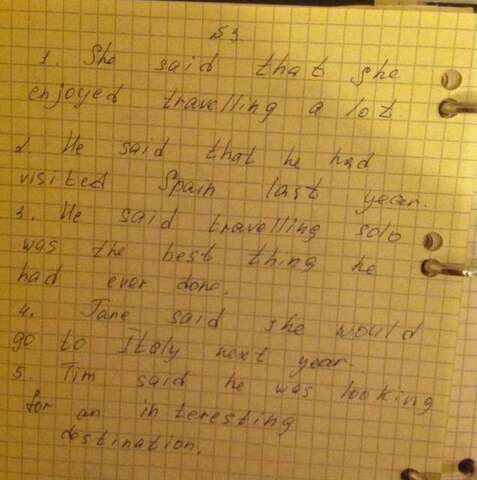 №3
1. She said that she
enjoyed travelling a lot
2. He said that he had
visited Spain last year.
3. He said travelling solo
was the best thing he
had ever done.
4. Jane said she would
go to Italy next year.
5. Tim said he was looking
for an interesting
destination.